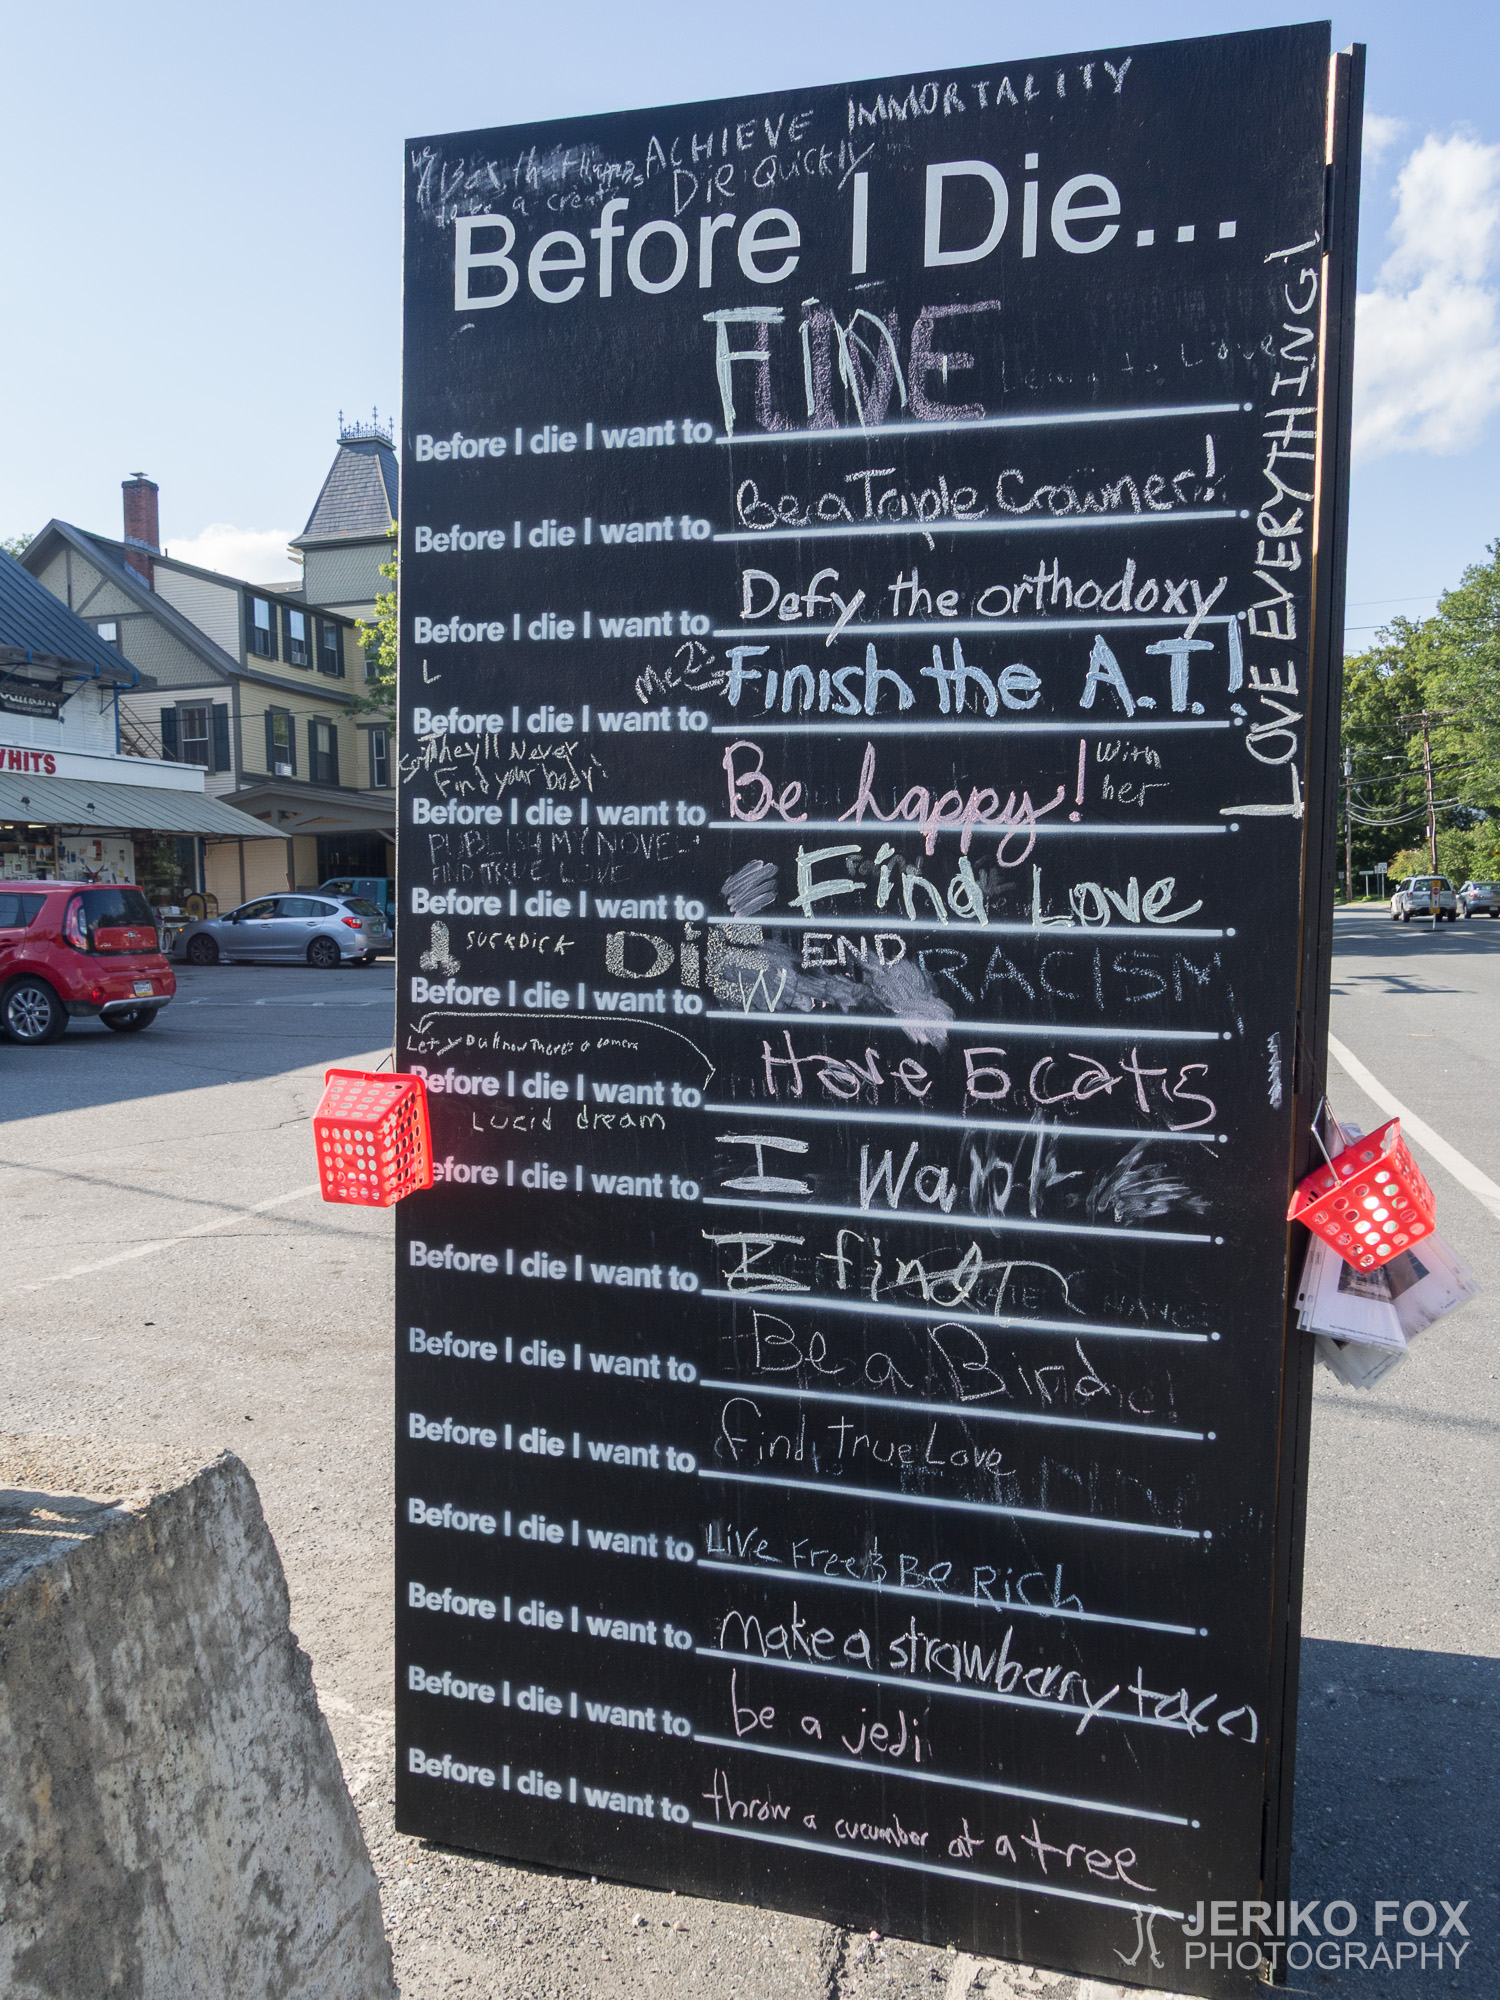 ACHIEVE IMMORTALITY
DIE QUICKLY
to be a
Before I Die...
LOVE EVERYTHING!
Learn to Love
Before I die I want to Fin LIVE
Before I die I want to Be a Triple Crowner!
Before I die I want to Defy the orthodoxy
L
Me 2
Before I die I want to Finish the A.T.!
They'll Never
Find your body
Before I die I want to Be happy! With her
PUBLISH MY NOVEL +
FIND TRUE LOVE
Before I die I want to Find Love
SUCKDICK DiE END RACISM
Before I die I want to W
Let There's a camera
Before I die I want to Have 5 cats
Lucid dream
efore I die I want to I Want
Before I die I want to I find
Before I die I want to Be a Bird
Before I die I want to find true Love
Before I die I want to LiVe Free & Be Rich
Before I die I want to make a strawberry taco
Before I die I want to be a jedi
Before I die I want to throw a cucumber at a tree
WHITS
JERIKO FOX
PHOTOGRAPHY